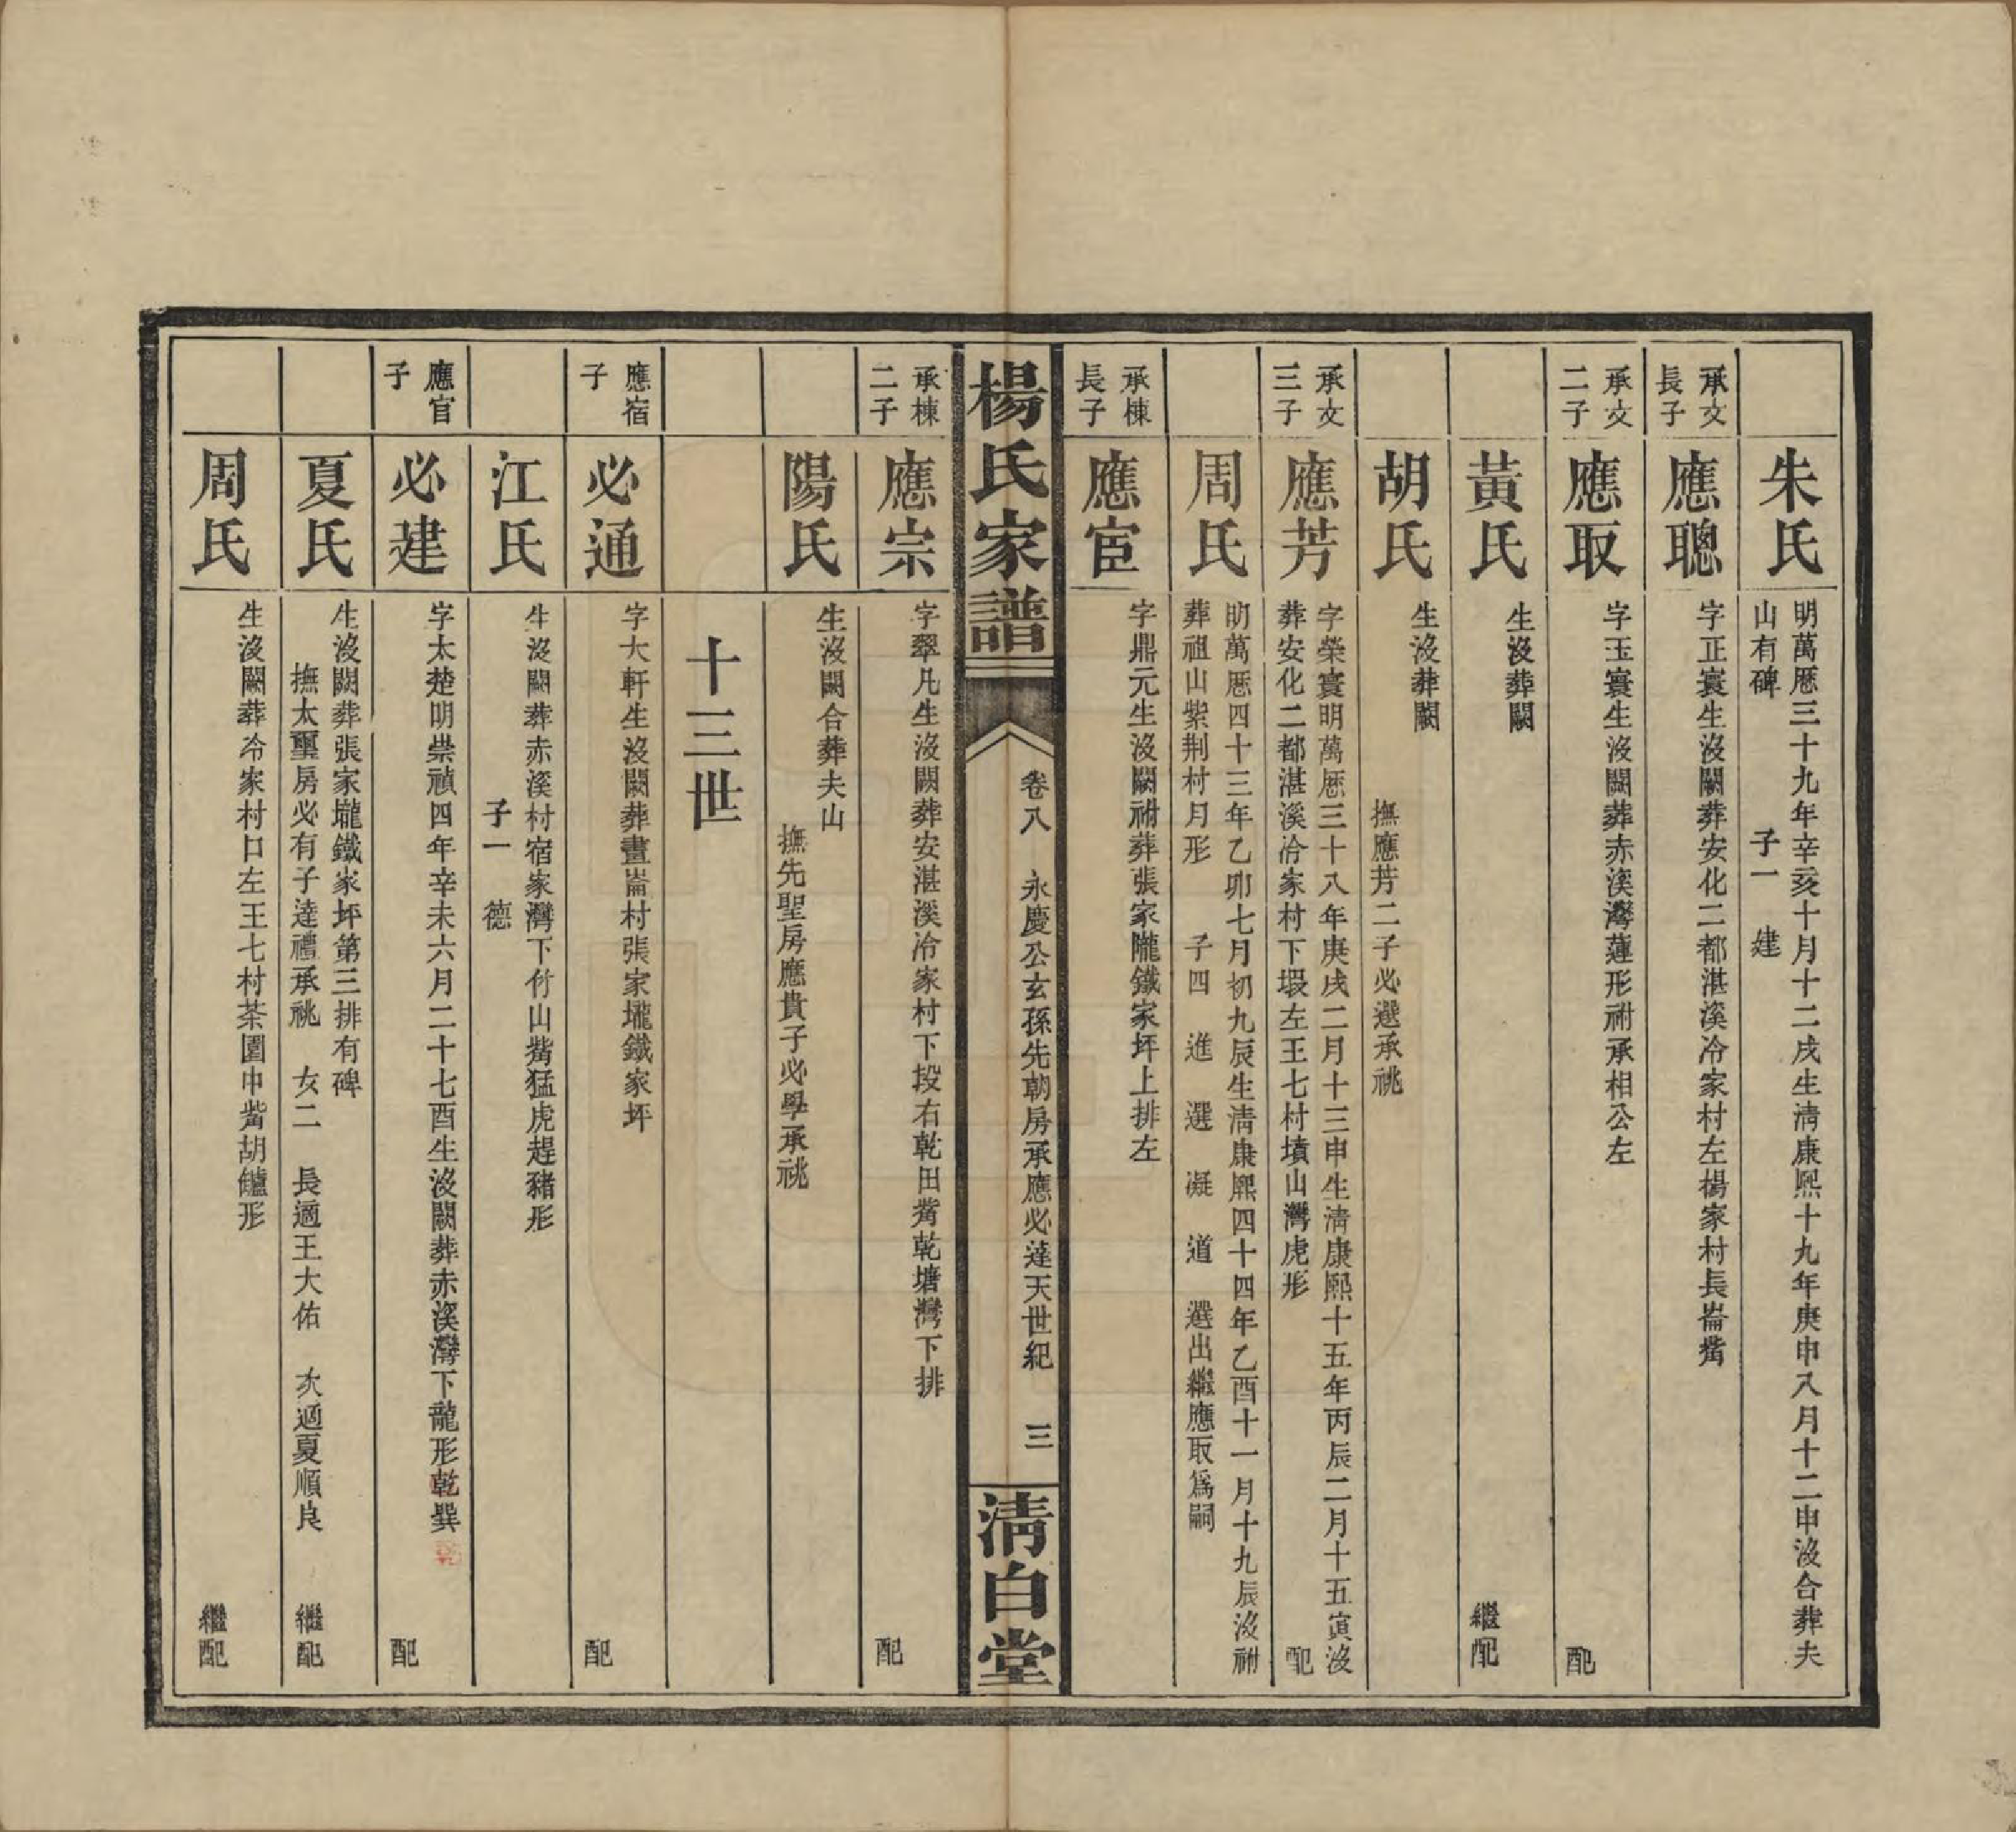 朱氏
明萬厯三十九年辛亥十月十二戌生淸康熙十九年庚申八月十二申沒合葬夫
山有碑　子一　建
承文
長子
應聰
字正寰生沒闕葬安化二都湛溪冷家村左楊家村長崙觜
承文
二子
應取
字玉寰生沒闕葬赤溪灣蓮形祔承相公左
配
黃氏
生沒葬闕
繼配
胡氏
生沒葬闕
撫應芳二子必選承祧
承文
三子
應芳
字榮寰明萬厯三十八年庚戌二月十三申生淸康熙十五年丙辰二月十五寅沒
葬安化二都湛溪冶家村下塅左王七村墳山灣虎形
配
周氏
明萬厯四十三年乙卯七月初九辰生淸康熙四十四年乙酉十一月十九辰沒祔
葬祖山紫荆村月形　子四　進　選　凝　道　選出繼應取爲嗣
承棟
長子
應宦
字鼎元生沒闕祔葬張家隴鐵家坪上排左
楊氏家譜
卷八　永慶公玄孫先朝房承應必達天世紀　三
淸白堂
承棟
二子
應宗
字翠凡生沒闕葬安湛溪冷家村下段右乾田觜乾塘灣下排
配
陽氏
生沒闕合葬夫山
撫先聖房應貴子必學承祧
十三世
應宿
子
必通
字大軒生沒闕葬晝崙村張家壠鐵家坪
配
江氏
生沒闕葬赤溪村宿家灣下付山觜猛虎趕豬形
子一　德
應官
子
必建
字太楚明崇禎四年辛未六月二十七酉生沒闕葬赤溪灣下龍形乾巽
配
夏氏
生沒闕葬張家壠鐵家坪第三排有碑
撫太璽房必有子達禮承祧　女二　長適王大佑　次適夏順良
繼配
周氏
生沒闕葬冷家村口左王七村茶園中觜胡鑪形
繼配